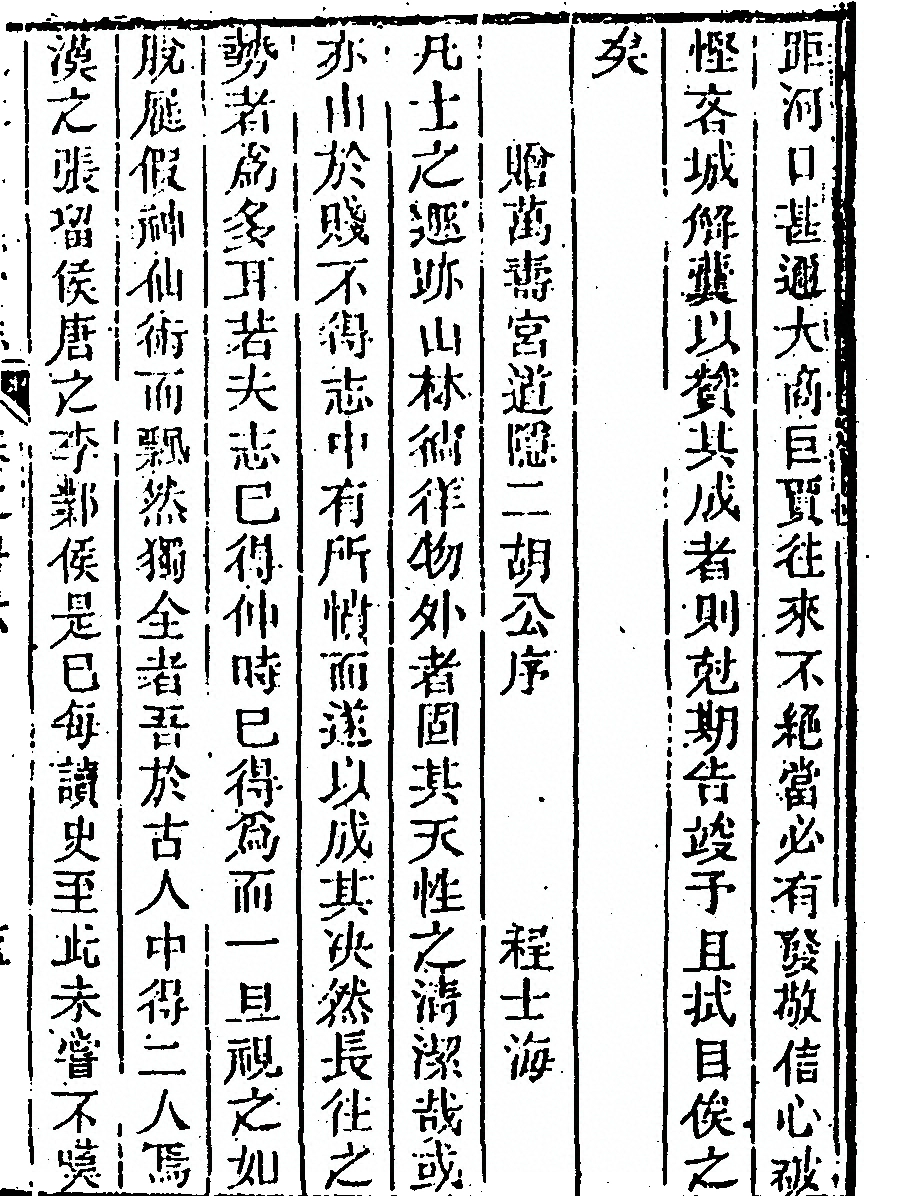 距河口甚邇大商巨賈往來不絕當必有發敬信心破
慳吝城解囊以贊其成者則尅期告竣予且拭目俟之
矣
贈萬壽宮道隱二胡公序 程士海
凡士之遯跡山林徜徉物外者固其天性之清潔哉或
亦山於賤不得志中有所憤而遂以成其決然長往之
勢者爲多耳若夫志巳得仲時巳得爲而一旦視之如
脫屣假神仙術而飄然獨全者吾於古人中得二人焉
漢之張留侯唐之李鄴侯是巳每讀史至此未嘗不嘆